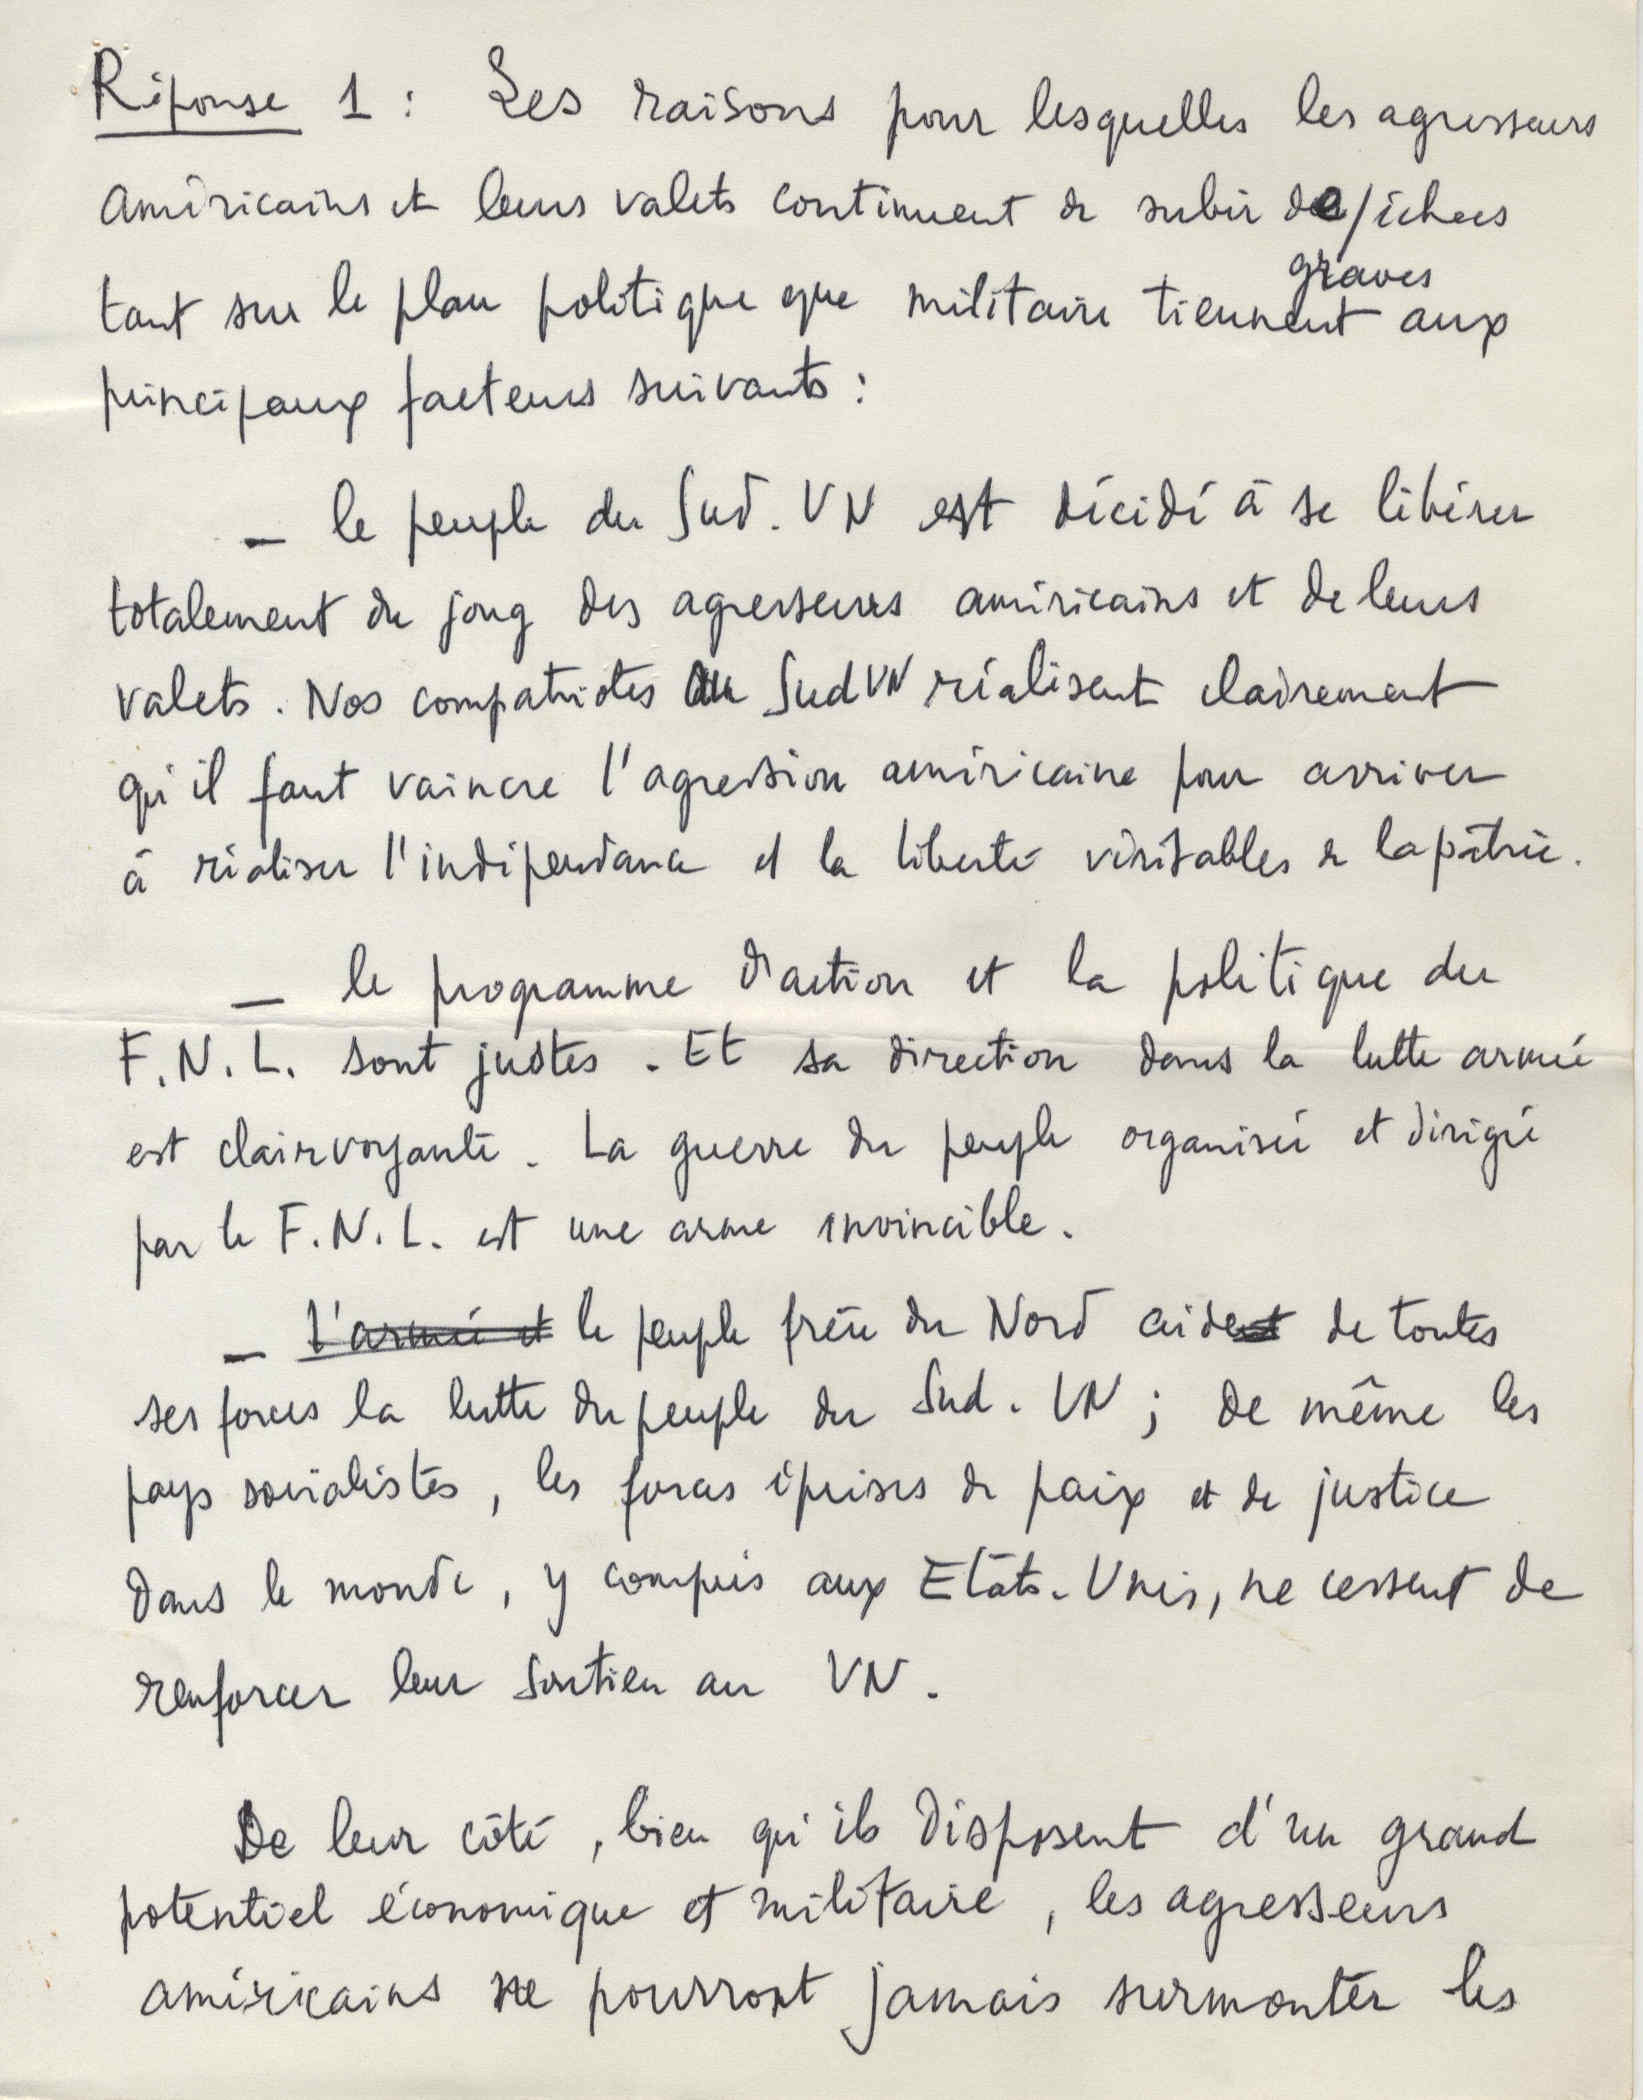 Réponse 1 : Les raisons pour lesquelles les agresseurs
américains et leurs valets continuent de subir de / échecs
graves
tant sur le plan politique que militaire tiennent aux
principaux facteurs suivants :
— le peuple du Sud. VN est décidé à se libérer
totalement du joug des agresseurs américains et de leurs
valets. Nos compatriotes au Sud VN réalisent clairement
qu'il faut vaincre l'agression américaine pour arriver
à réaliser l'indépendance et la liberté véritables de la patrie.
— le programme d'action et la politique du
F.N.L. sont justes. Et sa direction dans la lutte armée
est clairvoyante. La guerre du peuple organisée et dirigée
par le F.N.L. est une arme invincible.
— L'armée et le peuple frère du Nord aident de toutes
ses forces la lutte du peuple du Sud. VN ; de même les
pays socialistes, les forces éprises de paix et de justice
dans le monde, y compris aux Etats-Unis, ne cessent de
renforcer leur soutien au VN.
De leur côté, bien qu'ils disposent d'un grand
potentiel économique et militaire, les agresseurs
américains ne pourront jamais surmonter les